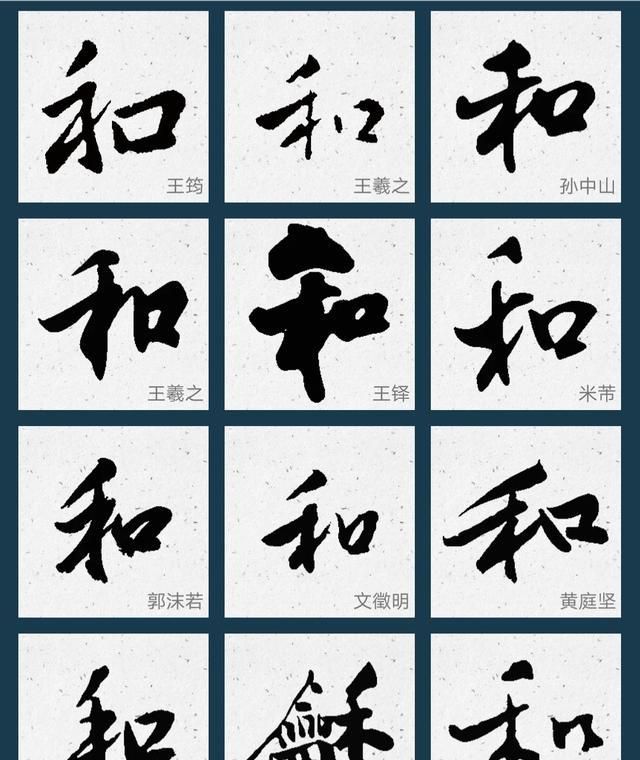 和 和 和
王筠 王羲之 孙中山
和 和 和
王羲之 王铎 米芾
和 和 和
郭沫若 文徵明 黄庭坚
和 龢 和